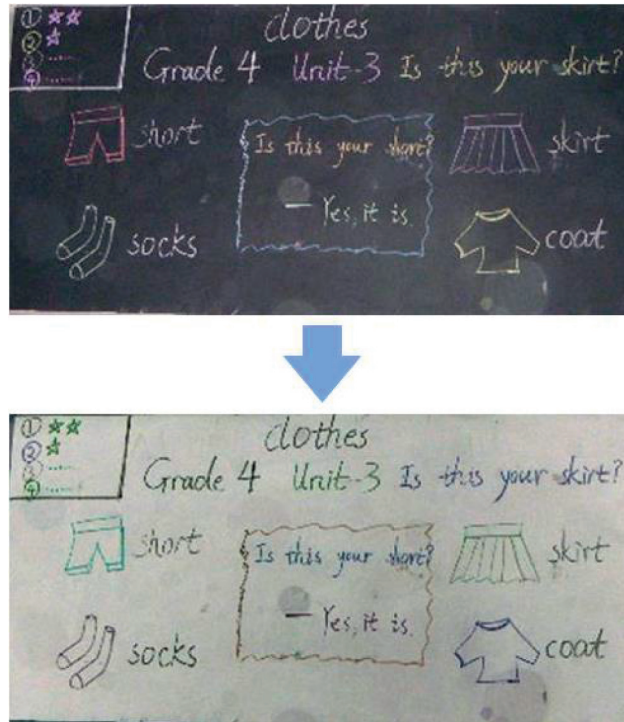 ① ☆☆
② ☆
③ ......
④ ......
clothes
Grade 4 Unit-3 Is this your skirt?
short
Is this your short?
skirt
socks
— Yes, it is.
coat
① ☆☆
② ☆
③ ......
④ ......
clothes
Grade 4 Unit-3 Is this your skirt?
short
Is this your short?
skirt
socks
— Yes, it is.
coat